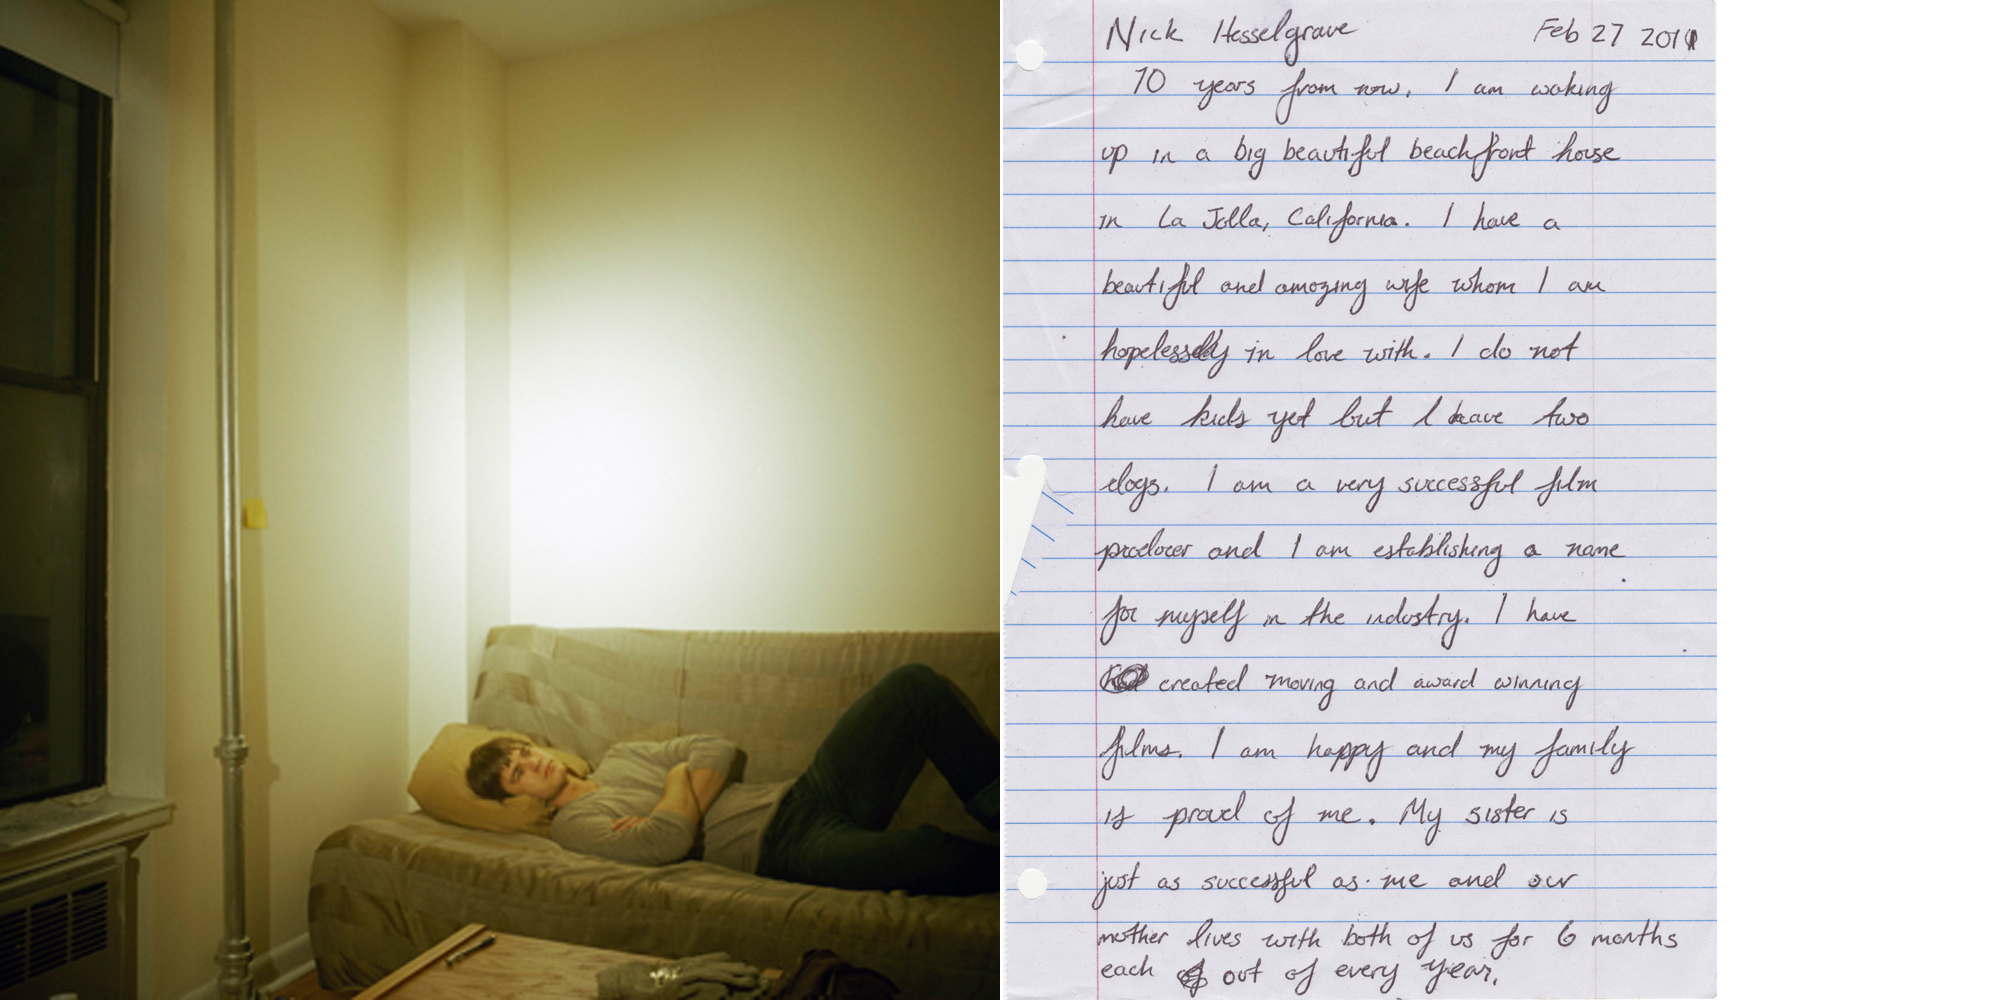 Nick Hesselgrave Feb 27 2011
10 years from now, I am waking
up in a big beautiful beachfront house
in La Jolla, California. I have a
beautiful and amazing wife whom I am
hopelessly in love with. I do not
have kids yet but I have two
dogs. I am a very successful film
producer and I am establishing a name
for myself in the industry. I have
created moving and award winning
films. I am happy and my family
is proud of me. My sister is
just as successful as me and our
mother lives with both of us for 6 months
each out of every year.